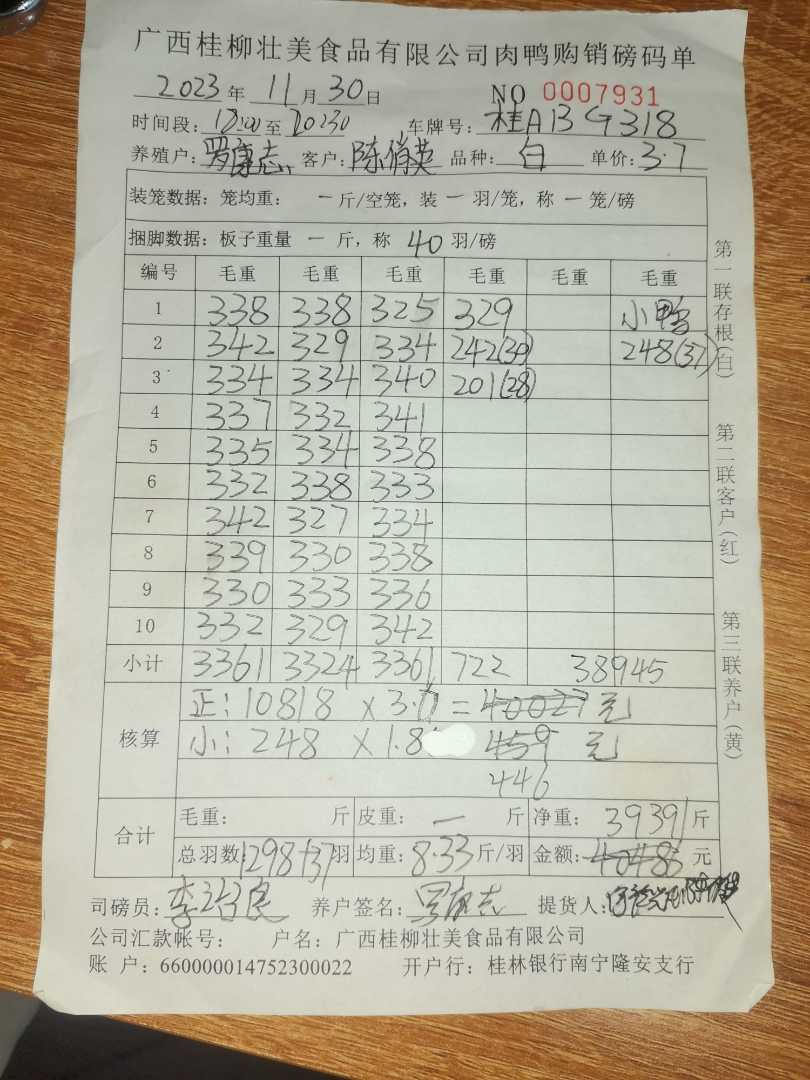 广西桂柳壮美食品有限公司肉鸭购销磅码单
2023年 11月30日 NO 0007931
时间段: 18:00至20:30 车牌号: 桂ABG318
养殖户: 罗康志 客户: 陈俏英 品种: 白 单价: 3.7
装笼数据: 笼均重: 一斤/空笼, 装一羽/笼, 称一笼/磅
捆脚数据: 板子重量 一斤, 称 40 羽/磅
编号 毛重 毛重 毛重 毛重 毛重 毛重
1 338 338 325 329 小鸭
2 342 329 334 242(30) 248(37)
3 334 334 340 201(28)
4 337 332 341
5 335 334 338
6 332 338 333
7 342 327 334
8 339 330 338
9 330 333 336
10 332 329 342
小计 3361 3324 3361 722 38945
核算 正: 10818 × 3. = 40027元
小: 248 × 1.8 459 元
446
合计 毛重: 斤 皮重: 一 斤 净重: 39391斤
总羽数: 1298+37羽 均重: 8.33斤/羽 金额: 40486元
司磅员: 养户签名: 罗康志 提货人:
公司汇款帐号: 户名: 广西桂柳壮美食品有限公司
账 户: 660000014752300022 开户行: 桂林银行南宁隆安支行
第一联存根(白)
第二联客户(红)
第三联养户(黄)